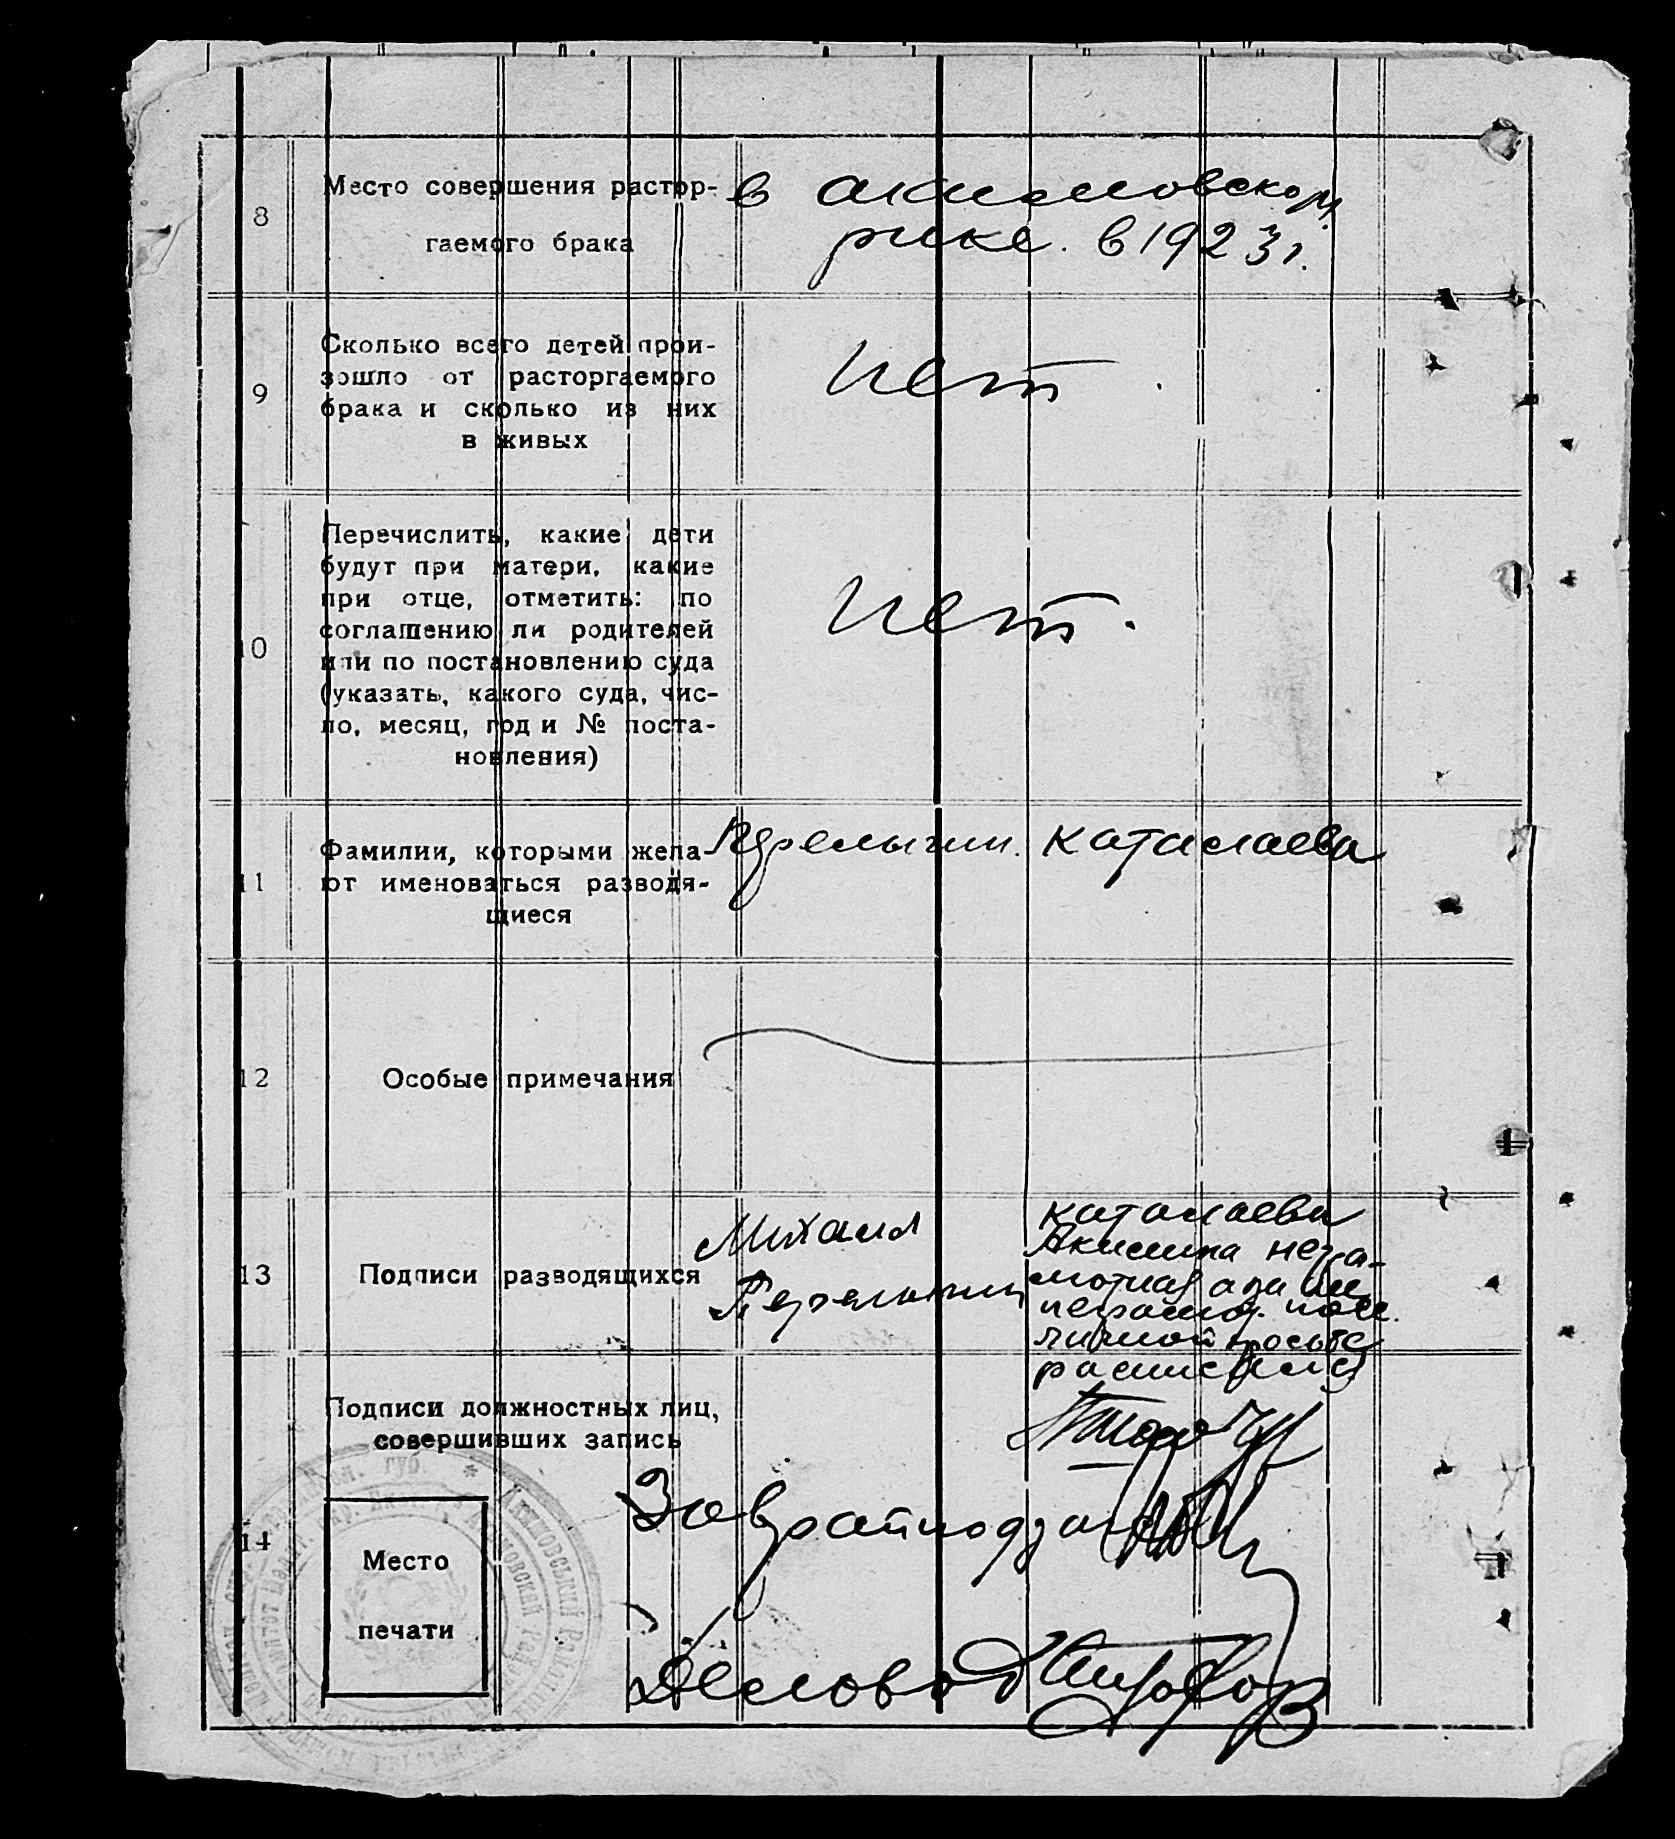 8
Место совершения растор-
гаемого брака
в акимовском
рике. в 1923 г.
9
Сколько всего детей прои-
зошло от расторгаемого
брака и сколько из них
в живых
нет
10
Перечислить, какие дети
будут при матери, какие
при отце, отметить: по
соглашению ли родителей
или по постановлению суда
(указать, какого суда, чис-
ло, месяц, год и № поста-
новления)
нет.
11
Фамилии, которыми жела-
ют именоваться разводя-
щиеся
Перелыгин. Каталаева
12
Особые примечания
13
Подписи разводящихся
Михаил
Перелыгин
Каталаева
Акилина негра-
мотная а за ии
неграмот. по ее
личной просьбе
расписался
14
Подписи должностных лиц,
совершивших запись
Место
печати
Зав райподзагс
Деловод
губ.
Акимовський Районный